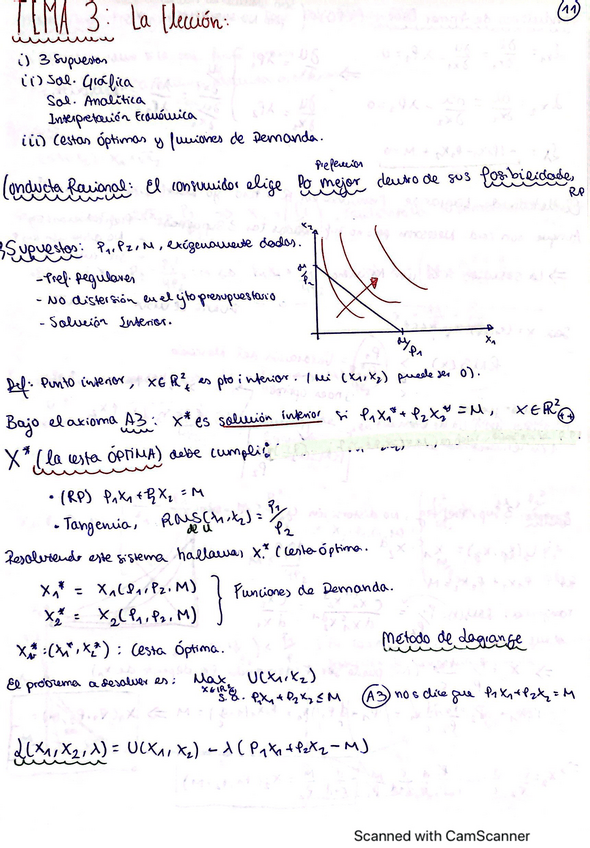 11
TEMA 3: La Elección:
i) 3 Supuestos
ii) Sol. Gráfica
Sol. Analítica
Interpretación Económica
iii) Cestas óptimas y funciones de Demanda.
Preferencias
Conducta Racional: El consumidor elige lo mejor dentro de sus posibilidades
RP
3 Supuestos: P1, P2, M, exógenamente dados.
- Pref. Regulares
- No distorsión en el cjto presupuestario
- Solución Interior.
X2
M/P2
M/P1
X1
Def: Punto interior, X∈R²₊ es pto interior. (Ni (X1, X2) puede ser 0).
Bajo el axioma A3: X* es solución interior si P1X1* + P2X2* = M, X∈R²₊₊
X* (la cesta ÓPTIMA) debe cumplir:
• (RP) P1X1 + P2X2 = M
• Tangencia, RMS(X1, X2) = P1/P2
de U
Resolviendo este sistema hallamos X* (cesta óptima.
X1* = X1(P1, P2, M)
X2* = X2(P1, P2, M)
} Funciones de Demanda.
X*: (X1*, X2*): Cesta Óptima.
Método de Lagrange
El problema a resolver es: Max U(X1, X2)
X∈R²₊
s.a. P1X1 + P2X2 ≤ M
A3 nos dice que P1X1 + P2X2 = M
L(X1, X2, λ) = U(X1, X2) − λ(P1X1 + P2X2 − M)
Scanned with CamScanner